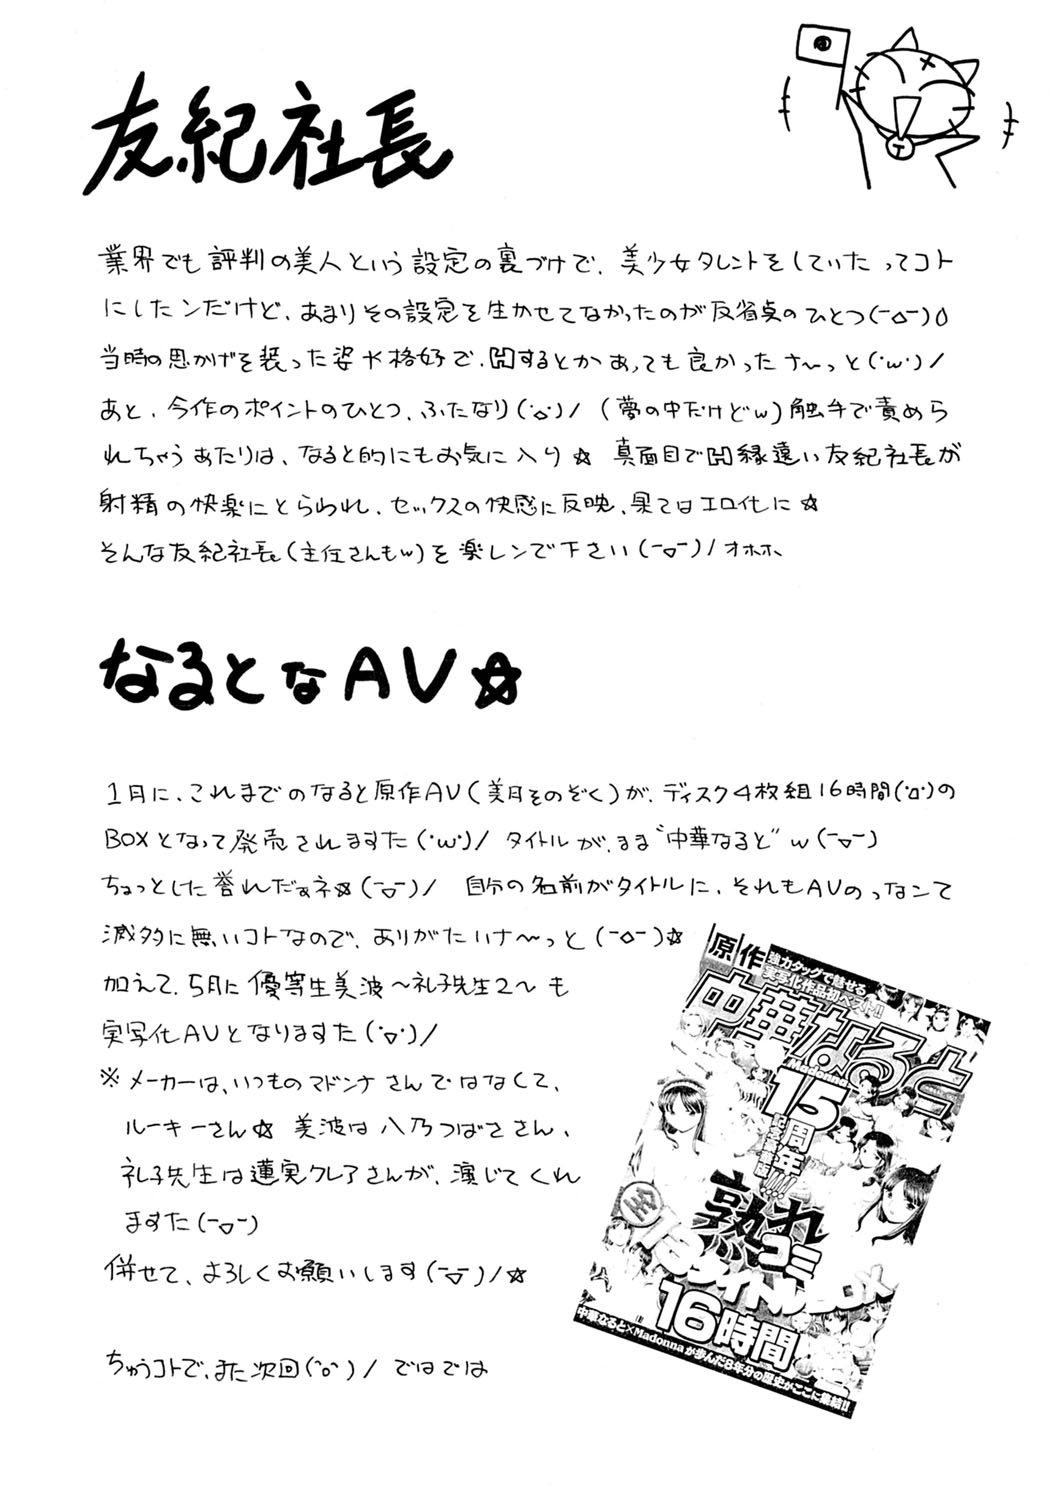 友紀社長
業界でも評判の美人という設定の裏づけで、美少女タレントをしていたってコト
にしたンだけど、あまりその設定を生かせてなかったのが反省点のひとつ(ー△ー)0
当時の思かげを装った姿や格好で、するとかあっても良かったナ〜っと(・w・)/
あと、今作のポイントのひとつ、ふたなり(・o・)/ (夢の中だけどw)触手で責めら
れちゃうあたりは、なると的にもお気に入り☆ 真面目で縁遠い友紀社長が
射精の快楽にとらわれ、セックスの快感に反映、果てはエロ化に☆
そんな友紀社長(主任さんもw)を楽しンで下さい(ー▽ー)/オホホ
なるとなAV☆
1月に、これまでのなると原作AV(美月そのぞく)が、ディスク4枚組16時間(・□・)の
BOXとなって発売されますた(・w・)/ タイトルが、まま"中華なると"w(ー▽ー)
ちょっとした誉れだぁネ☆(ー▽ー)/ 自分の名前がタイトルに、それもAVのってなンて
滅多に無いコトなので、ありがたいナ〜っと(ー◇ー)☆
加えて、5月に優等生美波〜礼子先生2〜も
実写化AVとなりますた(・▽・)/
※メーカーは、いつものマドンナさんではなくて、
ルーキーさん☆ 美波は八乃つばささん、
礼子先生は蓮実クレアさんが、演じてくれ
ますた(ー▽ー)
併せて、よろしくお願いします(ー▽ー)/☆
ちゅうコトで、また次回(・o・)/ ではでは
原作
強力タッグで魅せる
実写化作品初ベスト!!
中華なると
Madonna
15周年
記念豪華版!!!!
熟れコミ
全13タイトルBOX
16時間
中華なると×Madonnaが歩んだ8年分の歴史がここに集結!!
T